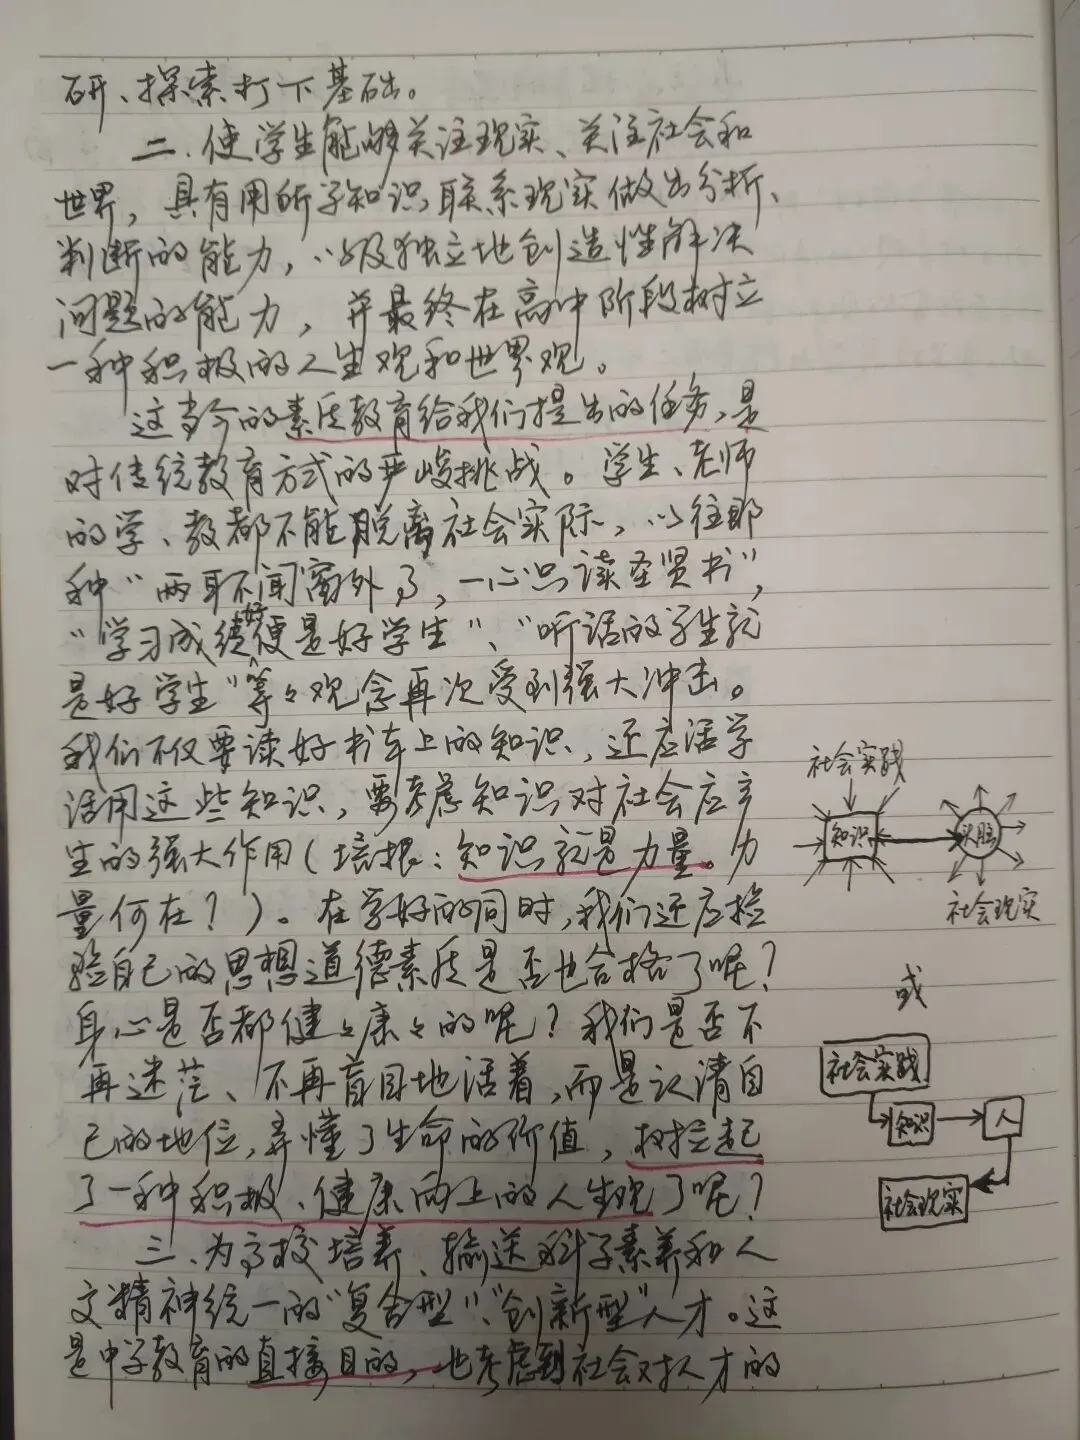 研、探索打下基础。
二、使学生能够关注现实、关注社会和
世界，具有用所学知识联系现实做出分析、
判断的能力，以及独立地创造性解决
问题的能力，并最终在高中阶段树立
一种积极的人生观和世界观。
这当今的素质教育给我们提出的任务，是
对传统教育方式的严峻挑战。学生、老师
的学、教都不能脱离社会实际，以往那
种“两耳不闻窗外事，一心只读圣贤书”，
“学习成绩好便是好学生”、“听话的学生就
是好学生”等々观念再次受到强大冲击。
我们不仅要读好书本上的知识，还应活学
活用这些知识，要考虑知识对社会应产
生的强大作用（培根：知识就是力量。力
量何在？）。在学好的同时，我们还应检
验自己的思想道德素质是否也合格了呢？
身心是否都健々康々的呢？我们是否不
再迷茫、不再盲目地活着，而是认清自
己的地位，弄懂了生命的价值，树拉起
了一种积极、健康向上的人生观了呢？
三、为高校培养、输送科学素养和人
文精神统一的“复合型”、“创新型”人才。这
是中学教育的直接目的，也考虑到社会对人才的
社会实践
知识
头脑
社会现实
或
社会实践
知识
人
社会现实